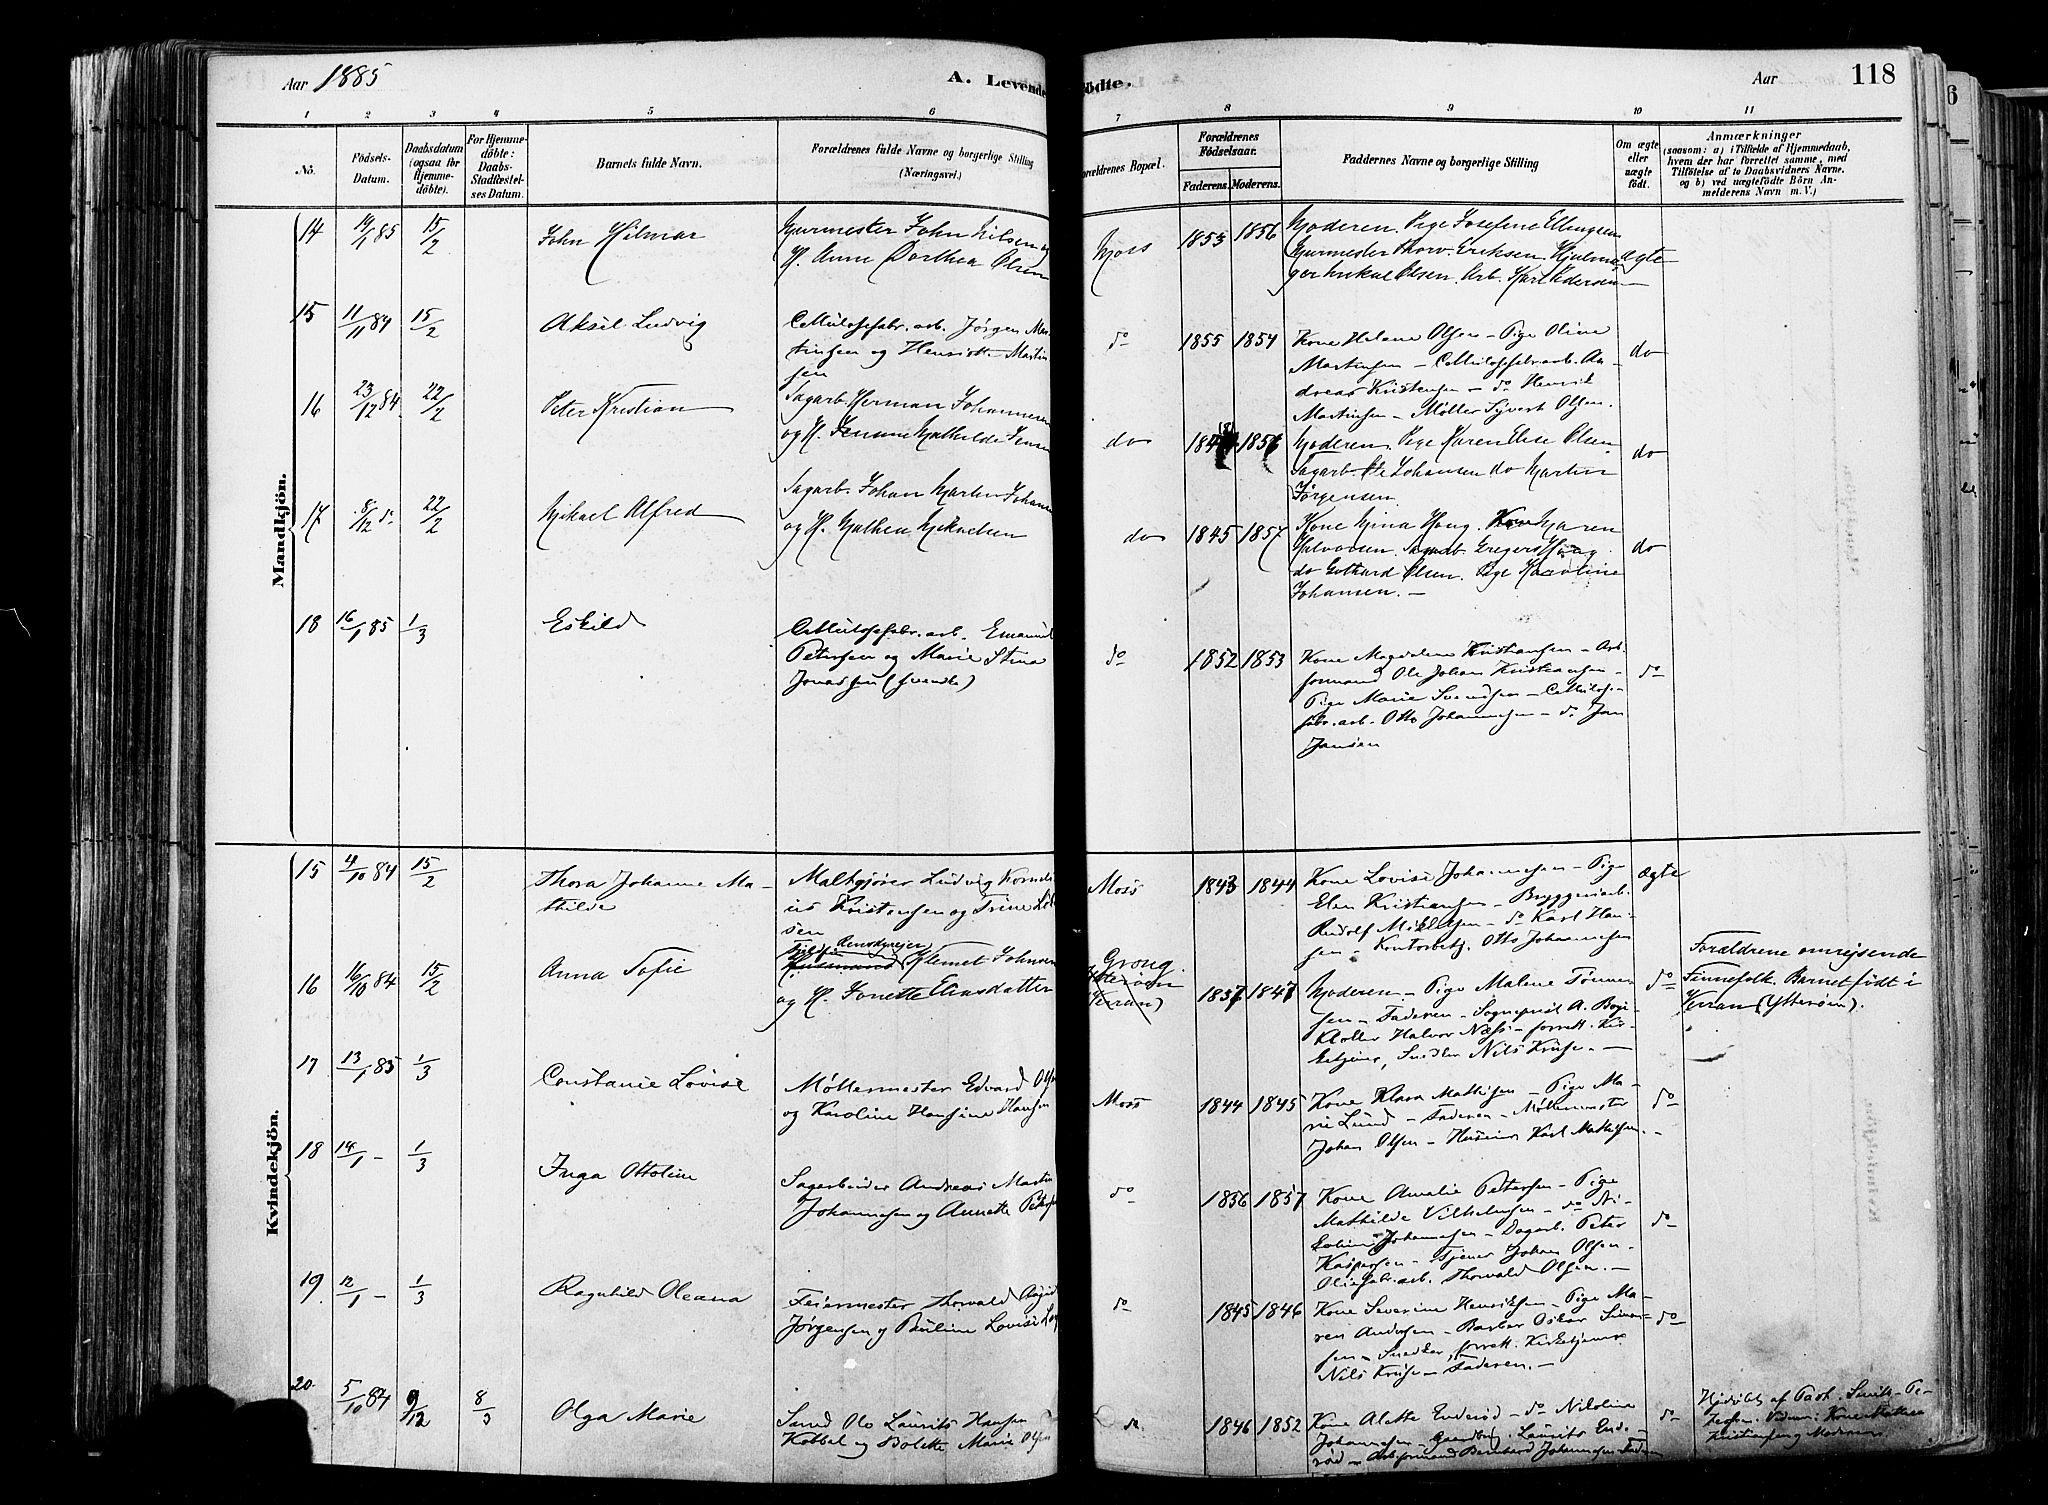 Aar 1885
A. Levende
födte.
Aar
118
1 2 3 4 5 6 7 8 9 10 11
No.
Födsels-
Datum.
Daabsdatum
(ogsaa for
Hjemme-
döbte).
For Hjemme-
döbte:
Daabs-
Stadfæstel-
ses Datum.
Barnets fulde Navn.
Forældrenes fulde Navne og borgerlige Stilling
(Næringsvei.)
Forældrenes Bopæl.
Forældrenes
Födselsaar.
Faderens. Moderens.
Faddernes Navne og borgerlige Stilling
Om ægte
eller
uægte
födt.
Anmærkninger
(saasom: a) i Tilfælde af Hjemmedaab,
hvem der har forrettet samme, med
Tilföielse af to Daabsvidners Navne.
og b) ved uægtefödte Börn An-
melderens Navn m. V.)
Mandkjön.
14 19/1 85 15/2
John Hilmar
Murmester John Nilsen og
H. Anne Dorthea Olsen
Moss
1853 1856
Moderen. Pige Josefine Ellingsen
Murmester Thorv. Eriksen.
Olsen. Arb. Karl Pedersen
ægte
15 11/11 84 15/2
Aksel Ludvig
Cellulosefabr. arb. Jørgen Mar-
tinsen og Henriette Martin
sen
do
1855 1854
Kone Helene Olsen - Pige Oline
Martinsen - Cellulosefabr. arb. An-
dreas Kristensen - do Henrik
Martinsen - Møller Syvert Olsen.
do
16 23/12 84 22/2
Peter Kristian
Sagarb. Herman Johannesen
og H. Mathilde Jensen
do
1856
Moderen. Pige Karen Elise Olsen
Sagarb. Ole Johansen do Martin
Jørgensen
do
17 8/12 do 22/2
Mikael Alfred
Sagarb. Johan Martin Johans
og H. Mathea Mikaelsen
do
1845 1857
Kone Mina Haug. Kone Maren
Halvorsen. Sagarb. Gregers Haug
do Gothard Olsen. Pige Karoline
Johansen. -
do
18 16/1 85 1/3
Eskild
Cellulosefabr. arb. Emanuel
Petersen og Marie Stina
Jonassen (svenske)
do
1852 1853
Kone Magdalene Kristiansen - Arb.
formand Ole Johan Kristiansen -
Pige Marie Svendsen - Cellulose-
fabr. arb. Otto Johannesen - do Jan
Jansen
do
Kvindekjön.
15 4/10 84 15/2
Thora Johanne Ma-
thilde
Maltgjører Ludvig Korneli
us Kristensen og Trine
sen
Moss
1843 1844
Kone Lovise Johannesen - Pige
Elen Kristiansen - Bryggeriarb.
Rudolf Mikkelsen - do Karl Han-
sen - Kontorbetj. Otto Johannesen
ægte
16 16/10 84 15/2
Anna Sofie
Rensdyrejer
Klemet Johnsen
og H. Jonette Eliasdatter
Grong.
Ytterøen
(Verran)
1837 1847
Moderen - Pige Malene Tønne-
sen - Faderen - Sogneprest A. Bøje
Kloller Halvor Næss - forrett. Kir-
ketjener, Snedker Nils Kruse. -
do
Forældrene omrejsende
Finnefolk. Barnet födt i
Verran (Ytterøen).
17 13/1 85 1/3
Constance Lovise
Møllermester Edvard Olsen
og Karoline Hansine Hansen
Moss
1844 1845
Kone Klara Mathisen - Pige Ma-
rie Lund - Faderen - Møllermester
Johan Olsen - Karl Mathisen. -
do
18 14/1 - 1/3
Inga Ottoline
Sagarbeider Andreas Martin
Johannesen og Annette Peters
do
1856 1857
Kone Amalie Petersen - Pige
Mathilde Vilhelmsen - do Ni-
koline Johannesen - Dagarb. Peter
Kaspersen - Tjener Johan Olsen -
Oliefabr. arb. Thorvald Olsen. -
do
19. 12/1 - 1/3
Ragnhild Oleana
Feiermester Thorvald August
Jørgensen og Pauline Lovise
do
1845 1846
Kone Severine Henriksen - Pige Ma-
ren Andersen - Barber Oskar Simon-
sen - Snedker, forrett. Kirketjener
Nils Kruse - Faderen. -
do
20. 5/10 84 9/12 8/3
Olga Marie
Smed Ole Laurits Hansen
Kobbel og Bolette Marie Olsen
do
1846 1852
Kone Alette Enderød - do Nikoline
Johannesen - Gaardbr. Laurits Ende-
rød - Arb. formand Bernhard Johannesen - Faderen
do
Hjdøbt af Past. Smith-Pe-
tersen. Vidner: Kone Mathea
Kristiansen og Moderen